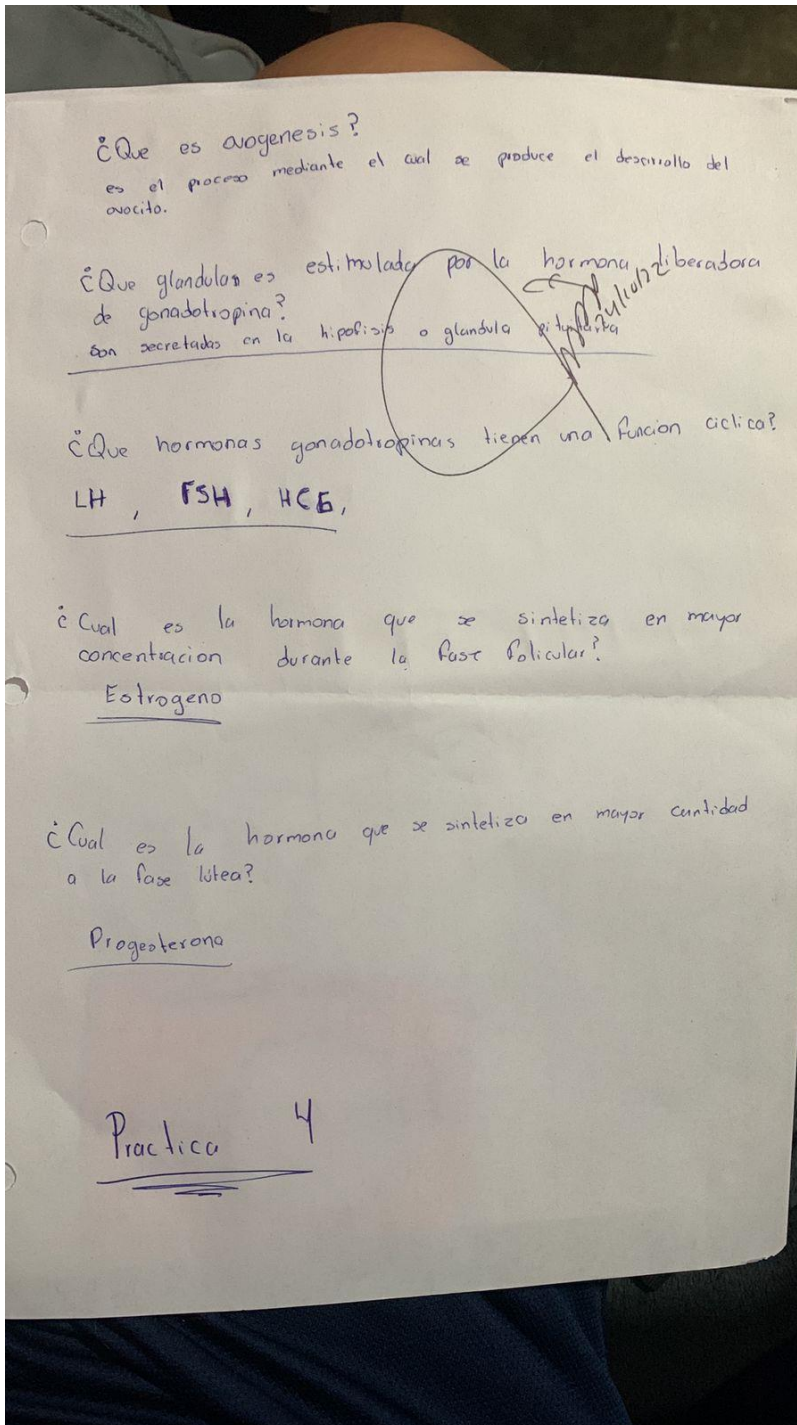 ¿Que es ovogenesis?
es el proceso mediante el cual se produce el desarrollo del
ovocito.
¿Que glandulas es estimulada por la hormona liberadora
de gonadotropina?
son secretadas en la hipofisis o glandula pituitaria
¿Que hormonas gonadotropinas tienen una funcion ciclica?
LH , FSH , HCG,
¿Cual es la hormona que se sintetiza en mayor
concentracion durante la fase folicular?
Estrogeno
¿Cual es la hormona que se sintetiza en mayor cantidad
a la fase lútea?
Progesterona
Practica 4